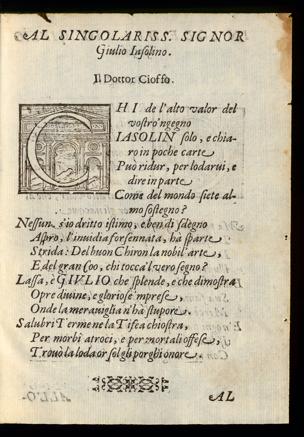 AL SINGOLARISS. SIGNOR
Giulio Iasolino.
Il Dottor Cioffo.
CHI de l'alto valor del
vostro'ngegno
IASOLIN solo, e chia-
ro in poche carte
Può ridur, per lodarui, e
dire in parte
Come del mondo siete al-
mo sostegno?
Nessun, s'io dritto istimo, e ben di sdegno
Aspro, l'inuidia forsennata, hà sparte
Strida: Del buon Chiron la nobil'arte,
E del gran Coo, chi tocca'l vero segno?
Lassa, è GIVLIO che splende, e che dimostra
Opre diuine, e gloriose'mprese,
Onde la merauiglia n'hà stupore.
Salubri Terme ne la Tifea chiostra,
Per morbi atroci, e per mortali offese,
Trouò la loda or sol gli porghi onore.
AL